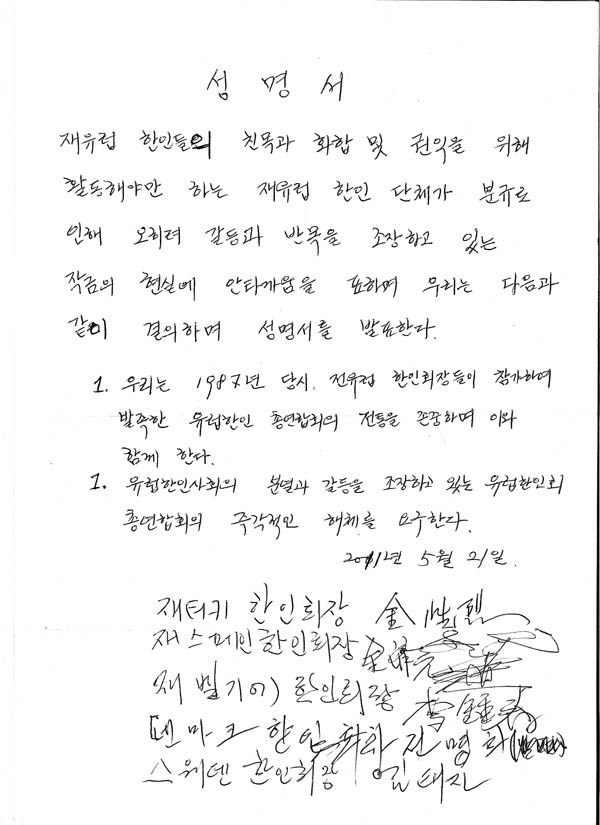 성 명 서
재유럽 한인들의 친목과 화합 및 권익을 위해
활동해야만 하는 재유럽 한인 단체가 분규로
인해 오히려 갈등과 반목을 조장하고 있는
작금의 현실에 안타까움을 표하며 우리는 다음과
같이 결의하며 성명서를 발표한다.
1. 우리는 1987년 당시. 전유럽 한인회장들이 참가하여
발족한 유럽한인 총연합회의 전통을 존중하며 이와
함께 한다.
1. 유럽한인사회의 분열과 갈등을 조장하고 있는 유럽한인회
총연합회의 즉각적인 해체를 요구한다.
2011년 5월 21일.
재터키 한인회장 金
재스페인한인회장
재 벨기에 한인회장 李鍾
덴마크 한인 전명
스웨덴 한인회장 김태진